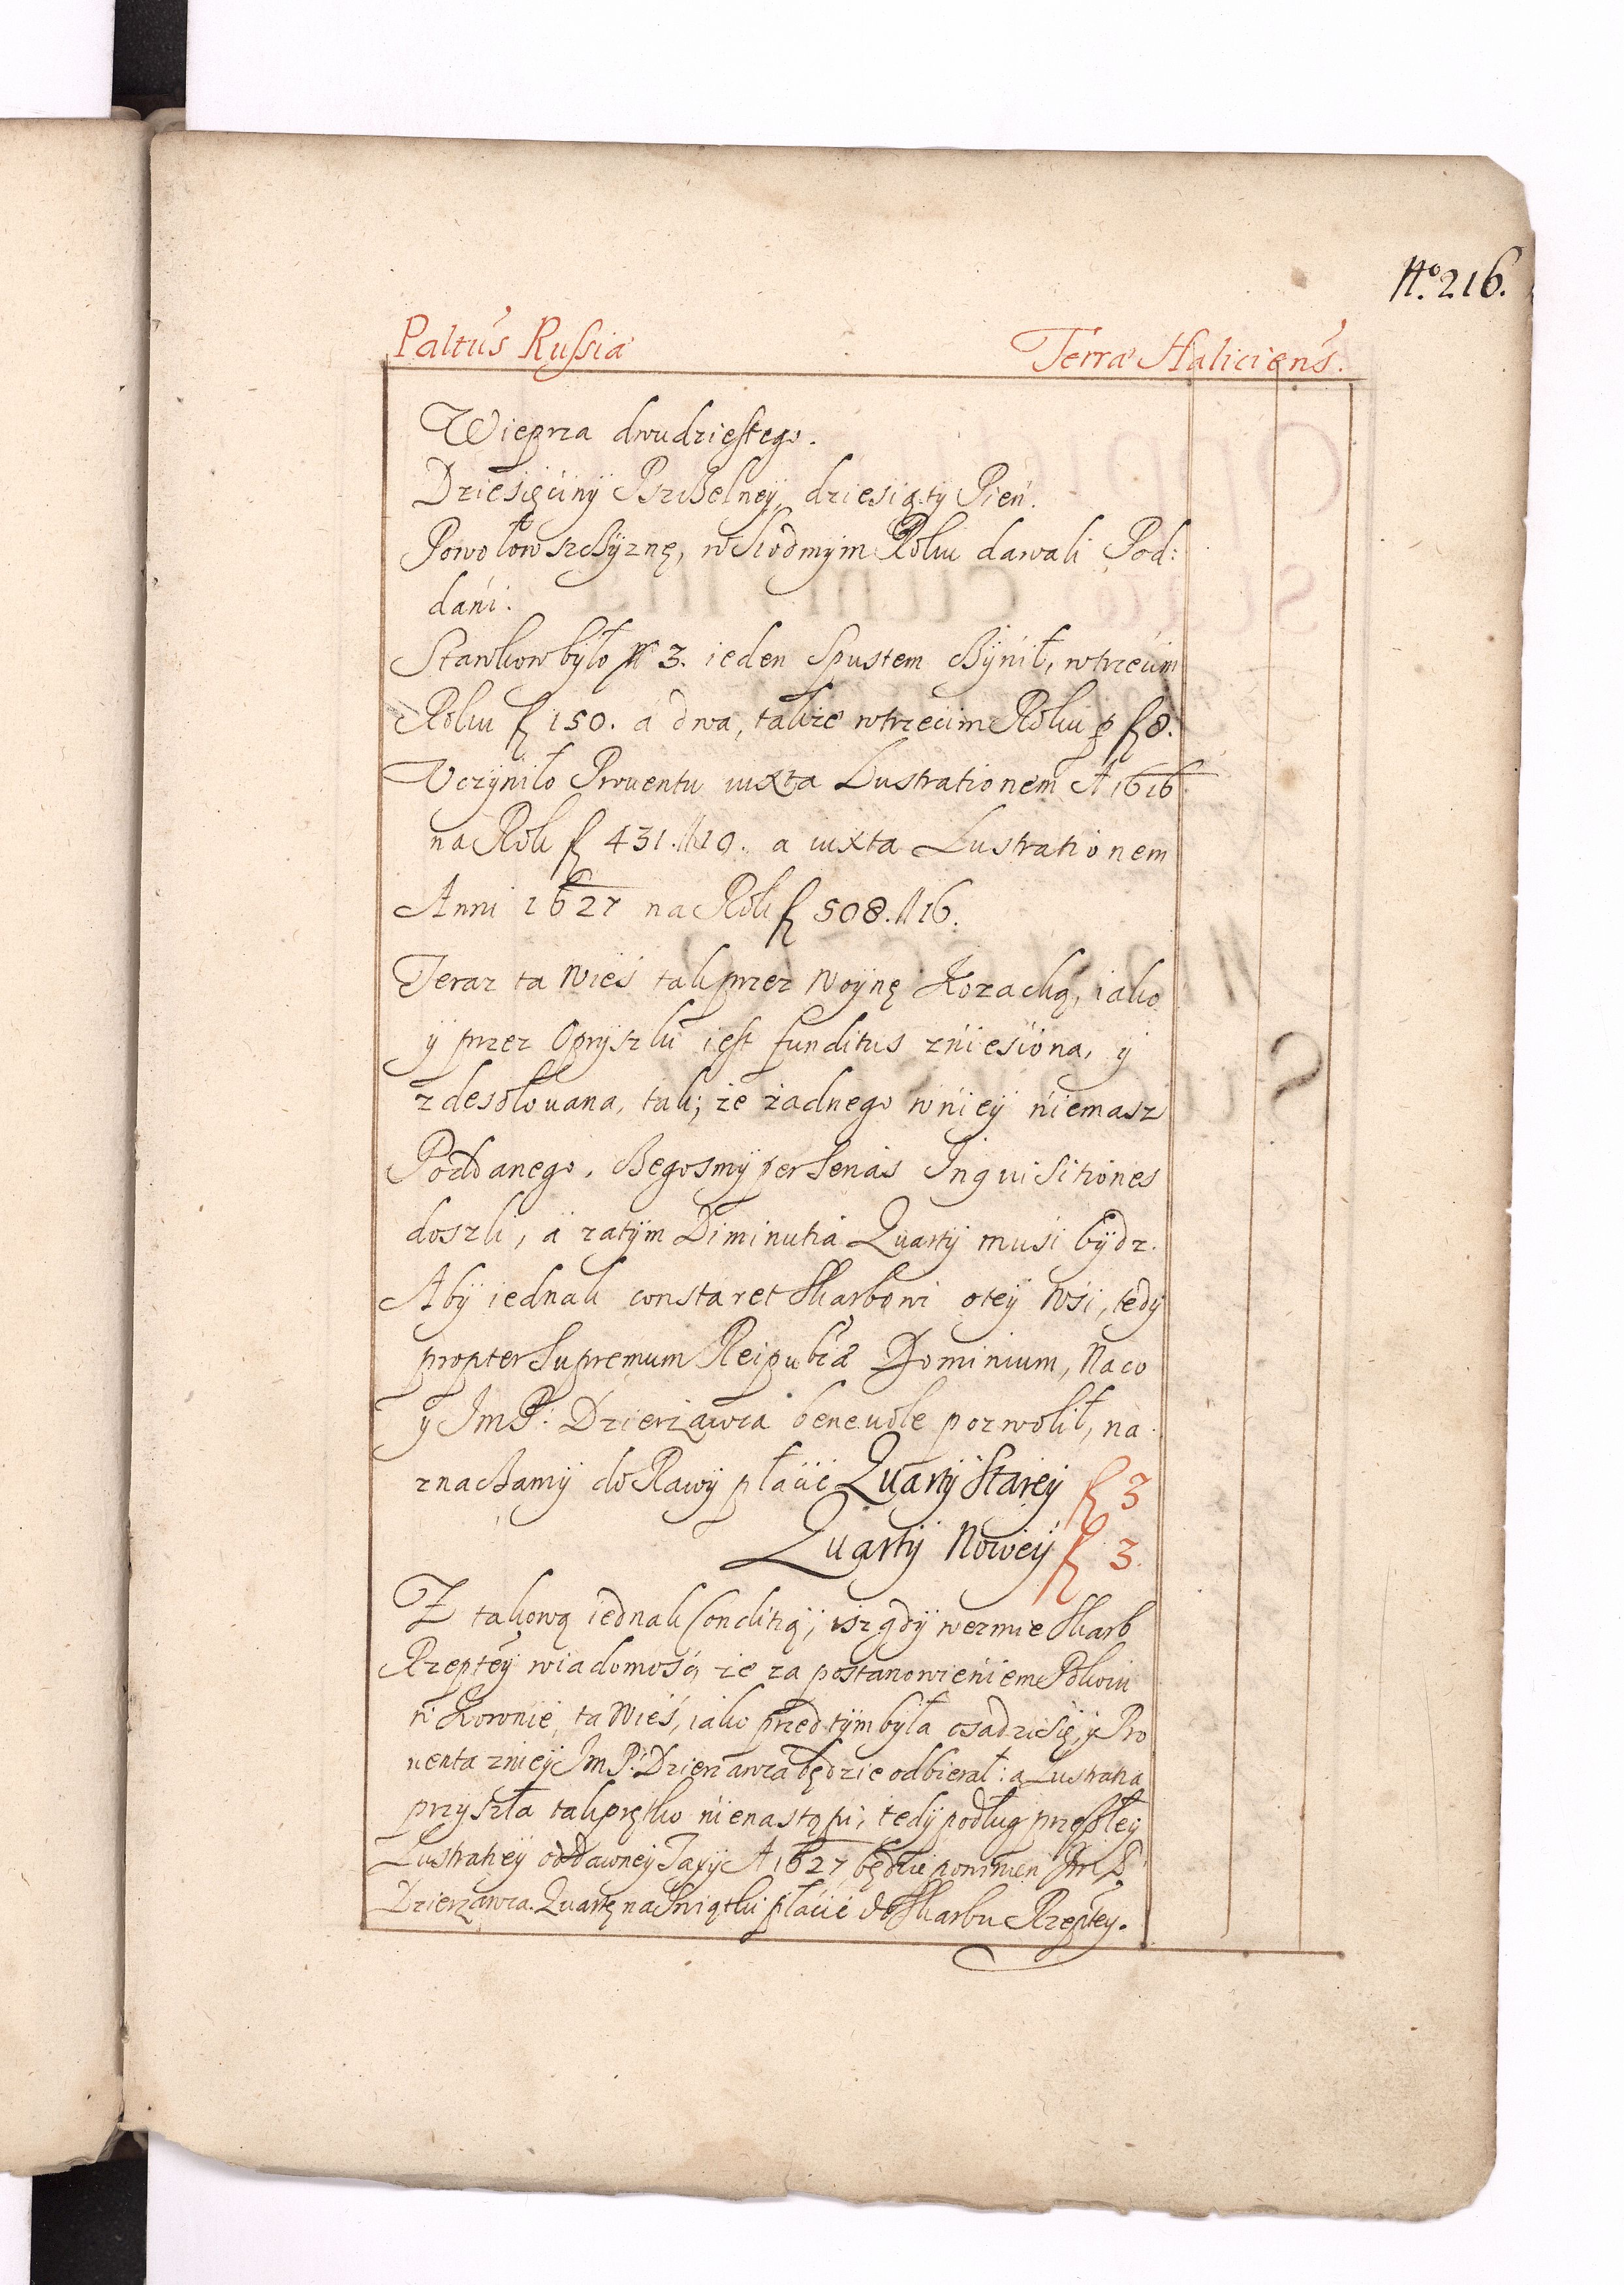 No. 216.
Paltus Russiæ Terræ Haliciens.
Wieprza dwudziestego.
Dziesięciny Pszczelney, dziesiąty Pień.
Powołowszczyznę, w siodmym Roku dawali Pod:
dani.
Stawkow było N 3. ieden Spustem czynił, w trzecim
Roku f 150. a dwa, także w trzecim Roku p f 8.
Uczyniło Prouentu iuxta Lustrationem A 1616
na Rok f 431.//10. a iuxta Lustrationem
Anni 1627 na Rok f 508.//16.
Teraz ta Wieś tak przez Woynę Kozacką, iako
y przez Opryszki iest funditus zniesiona, y
zdesolowana, tak; że żadnego w niey niemasz
Poddanego, czegosmy per Inquisitiones
doszli, a zatym Diminutia Quarty musi bydz.
Aby iednak constaret Skarbowi o tey Wsi, tedy
propter Supremum Reipublæ Dominium, Na co
y Im P: Dzierżawca beneuole pozwolił, na
znaczamy do Rawy płacić Quarty Starey f 3
Quarty Nowey f 3.
Z takową iednak Conditią, isz gdy wezmie Skarb
Rzeptey wiadomość, że za postanowieniem Pokoiu
ta Wieś, iako przedtym była osadzi się, y Pro
uenta z niey Im P: Dzierzawca będzie odbierał: a Lustratia
przyszła tak prętko nie nastąpi, tedy podług przeszłey
Lustratiey od dawney Taxy A 1627, będzie powinien Im P.
Dzierzawca Quartę na Swiątki płacić do Skarbu Rzeptey.